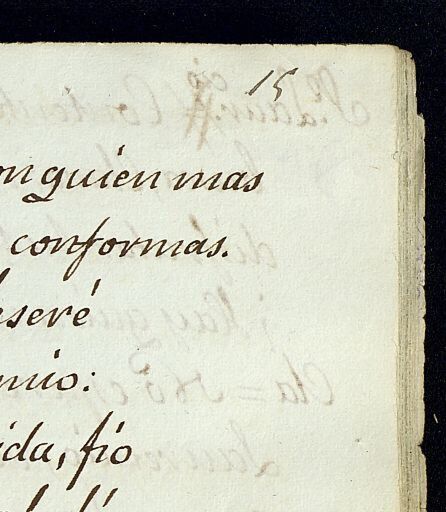 15
on quien mas
conformas.
eseré
mio:
ida, fio